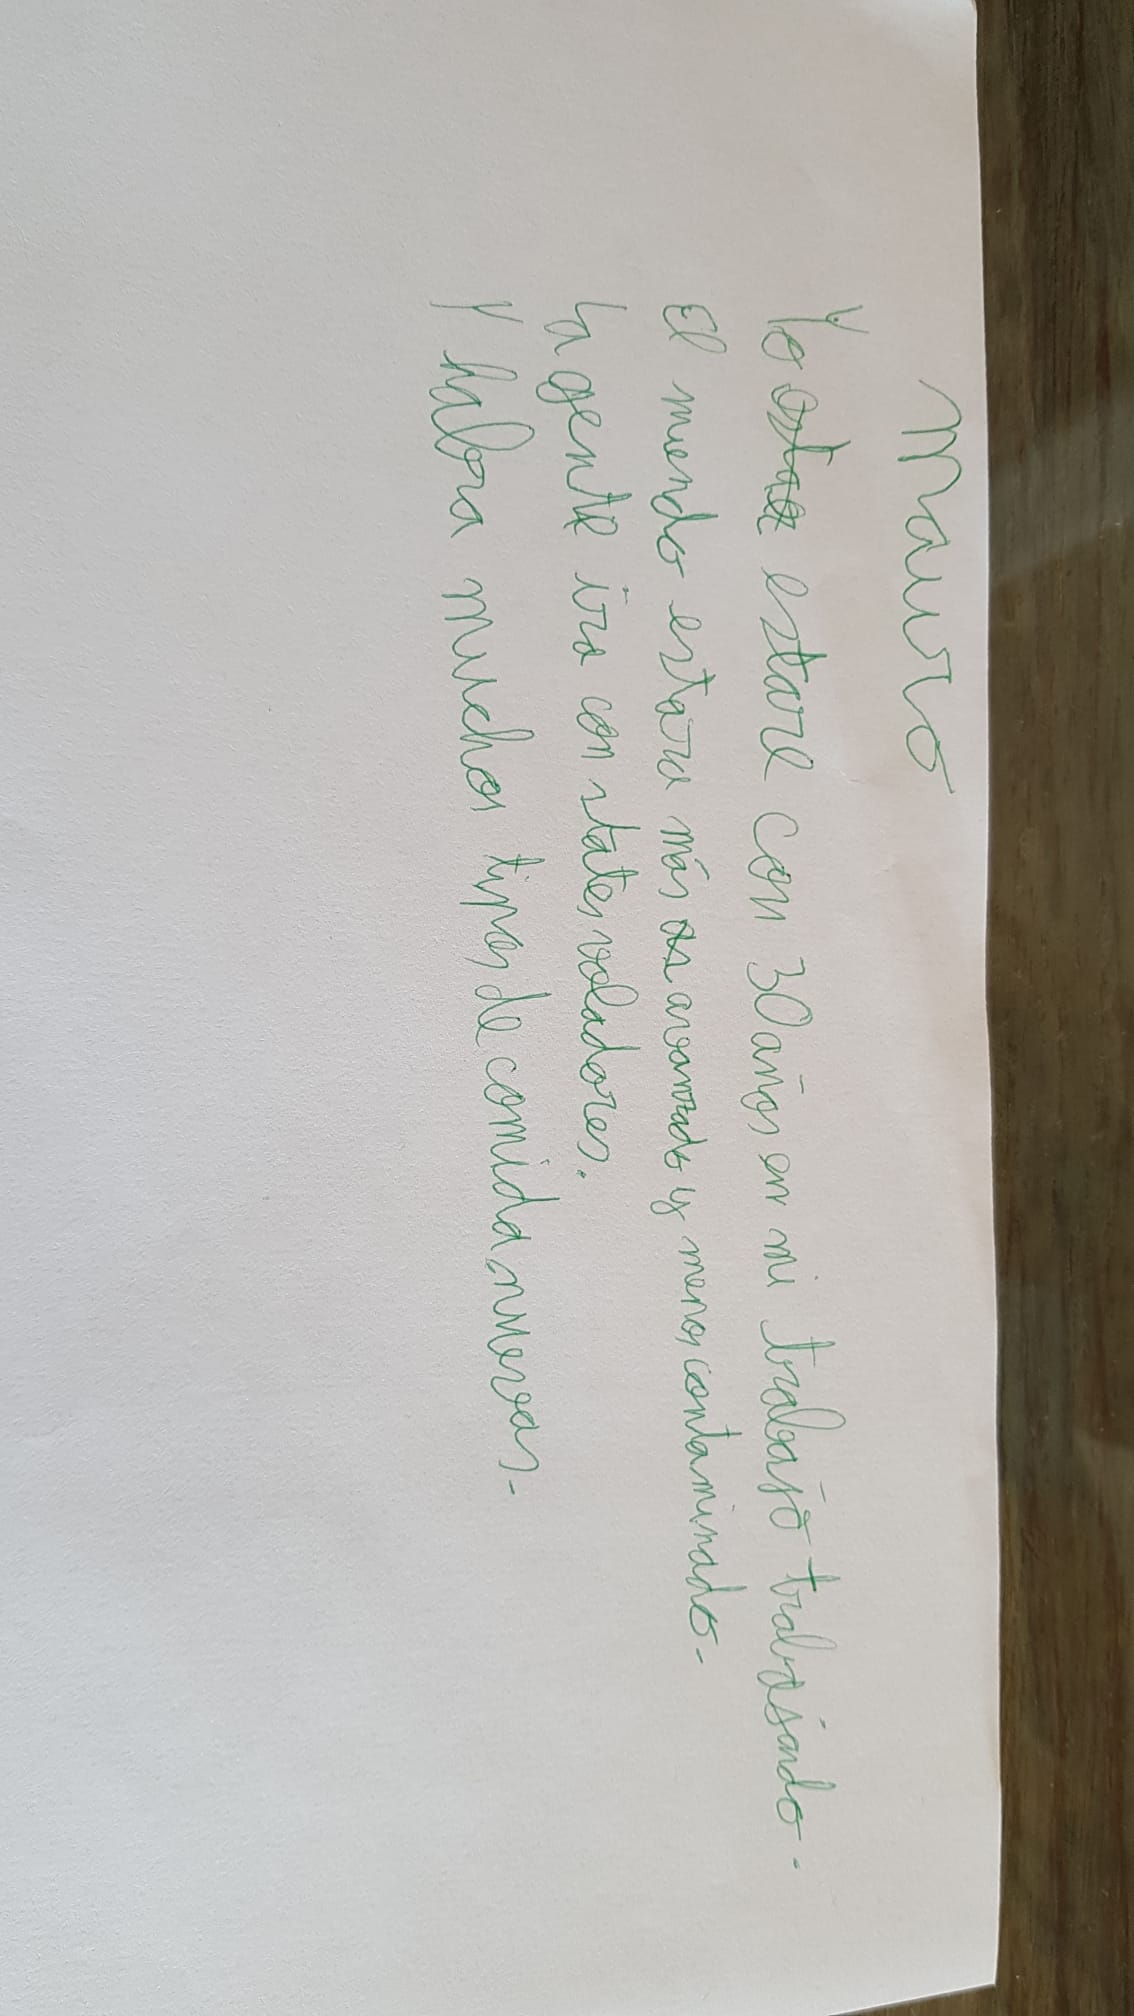 Mauro
Yo estare con 30 años en mi trabajo trabajando.
El muendo estara más avanzado y menos contaminado.
La gente ira con states voladores.
Y habra muchos tipos de comida nuevas.